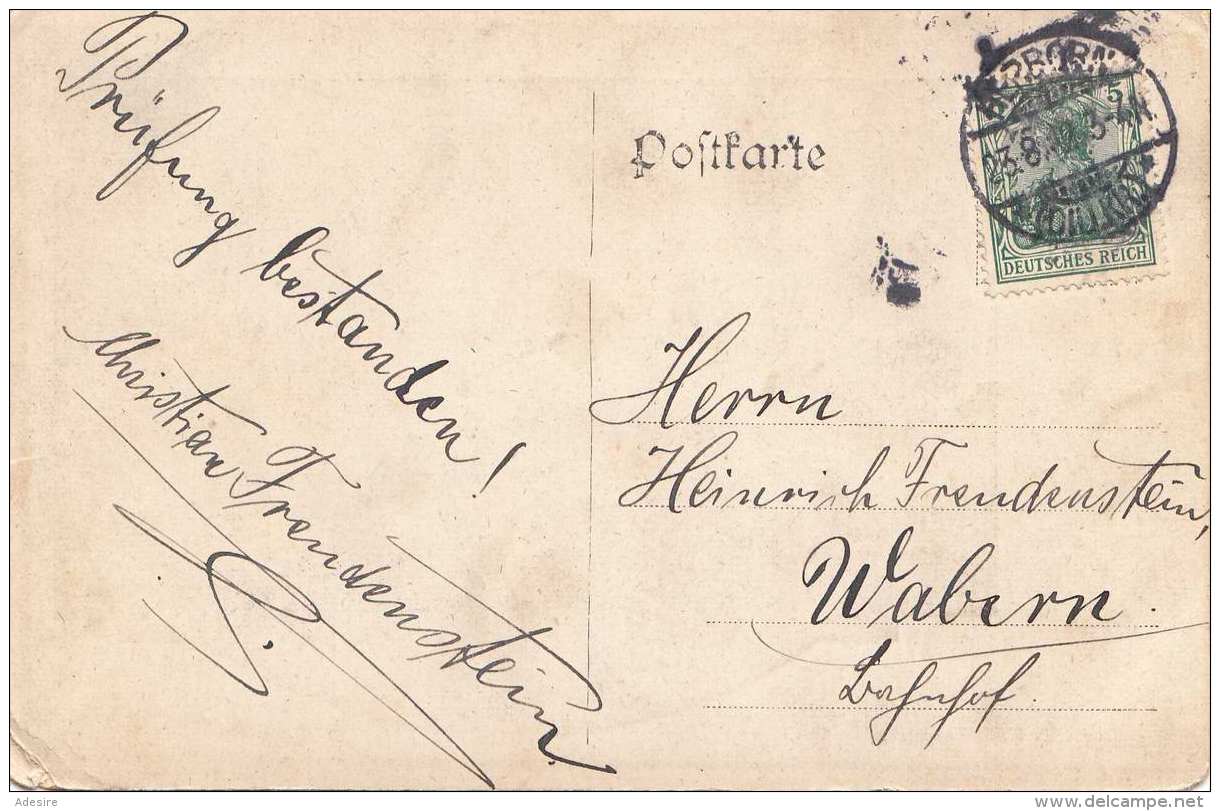 Prüfung bestanden!
Christian Freudenstein
Postkarte
5
DEUTSCHES REICH
Herrn
Heinrich Freudenstein,
Wabern.
Bahnhof.
Adesire
delcampe.net